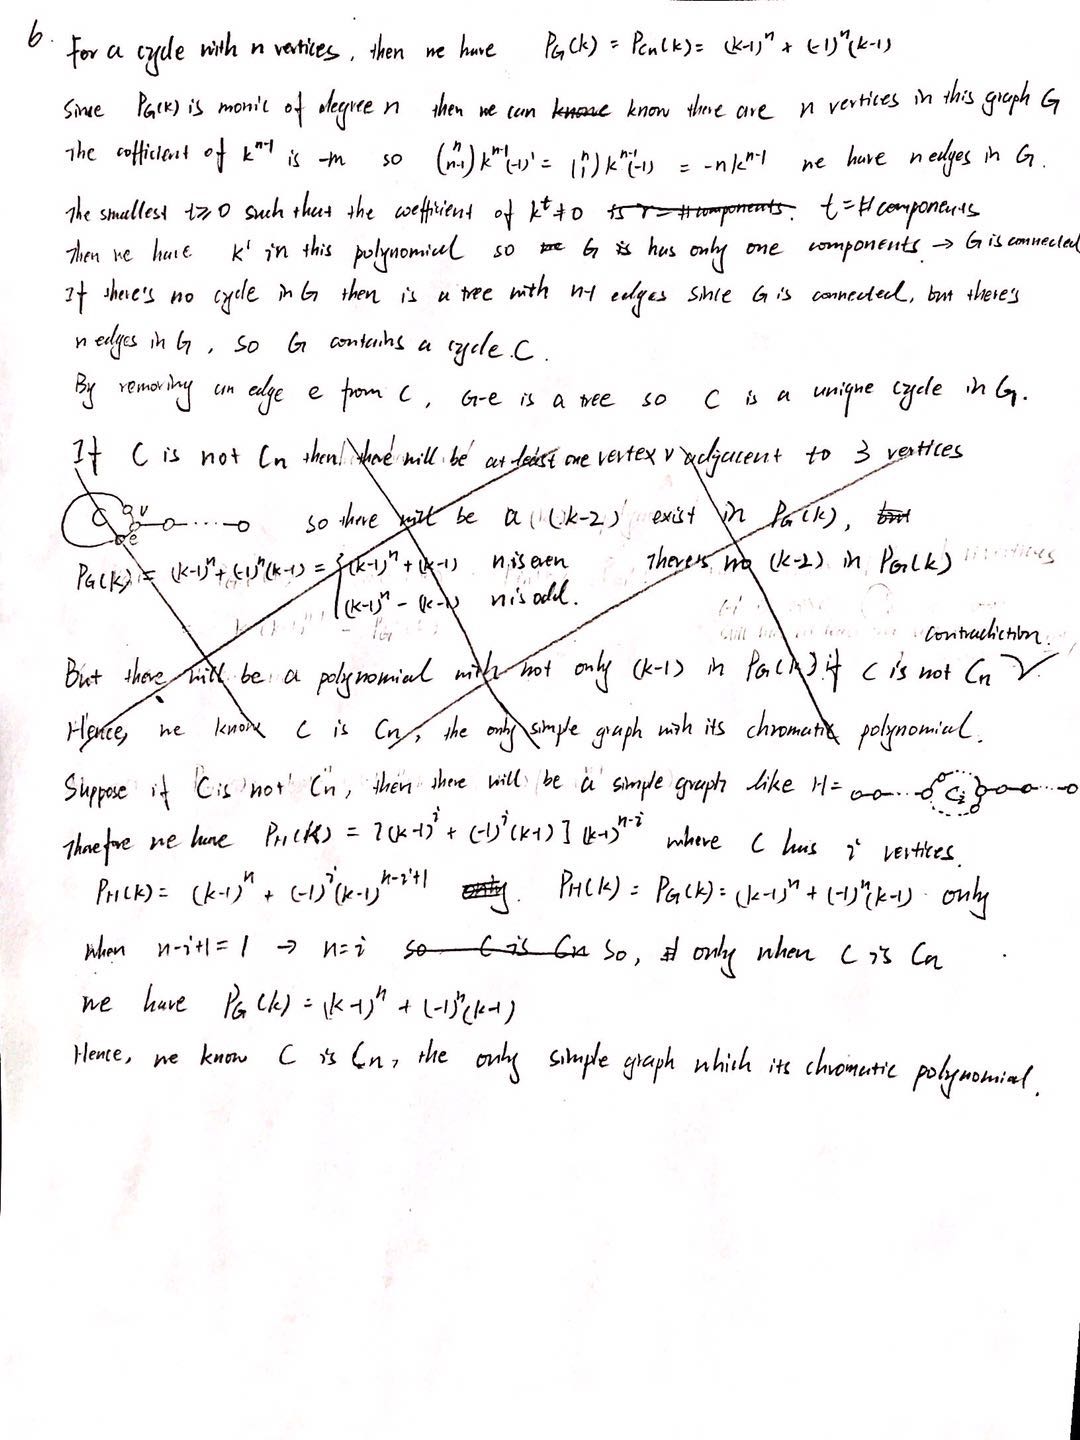 6. For a cycle with n vertices, then we have P_G(k) = P_Cn(k) = (k-1)^n + (-1)^n(k-1)
Since P_G(k) is monic of degree n then we can know know there are n vertices in this graph G
The cofficient of k^{n-1} is -m so (n n-1) k^{n-1}(-1)^1 = (n 1) k^{n-1}(-1) = -nk^{n-1} we have n edges in G.
The smallest t≥0 such that the coefficient of k^t≠0 is r = #components. t = # components
Then we have k^1 in this polynomial so G is has only one components → G is connected
If there's no cycle in G then is a tree with n-1 edges since G is connected, but there's
n edges in G, so G contains a cycle C.
By removing an edge e from C, G-e is a tree so C is a unique cycle in G.
If C is not Cn then there will be at least one vertex v adjacent to 3 vertices
C v e so there will be a (k-2) exist in P_G(k), but
P_G(k) = (k-1)^n + (-1)^n(k-1) = { (k-1)^n + (k-1) n is even There's no (k-2) in P_G(k)
(k-1)^n - (k-1) n is odd.
contradiction.
But there will be a polynomial with not only (k-1) in P_G(k) if C is not Cn
Hence, we know C is Cn, the only simple graph with its chromatic polynomial.
Suppose if C is not Cn, then there will be a simple graph like H = Ci
Therefore we have P_H(k) = [(k-1)^i + (-1)^i(k-1)] (k-1)^{n-i} where C has i vertices.
P_H(k) = (k-1)^n + (-1)^i(k-1)^{n-i+1} only. P_H(k) = P_G(k) = (k-1)^n + (-1)^n(k-1) only
when n-i+1 = 1 → n = i so C is Cn So, only when C is Cn
we have P_G(k) = (k-1)^n + (-1)^n(k-1)
Hence, we know C is Cn, the only simple graph which its chromatic polynomial.